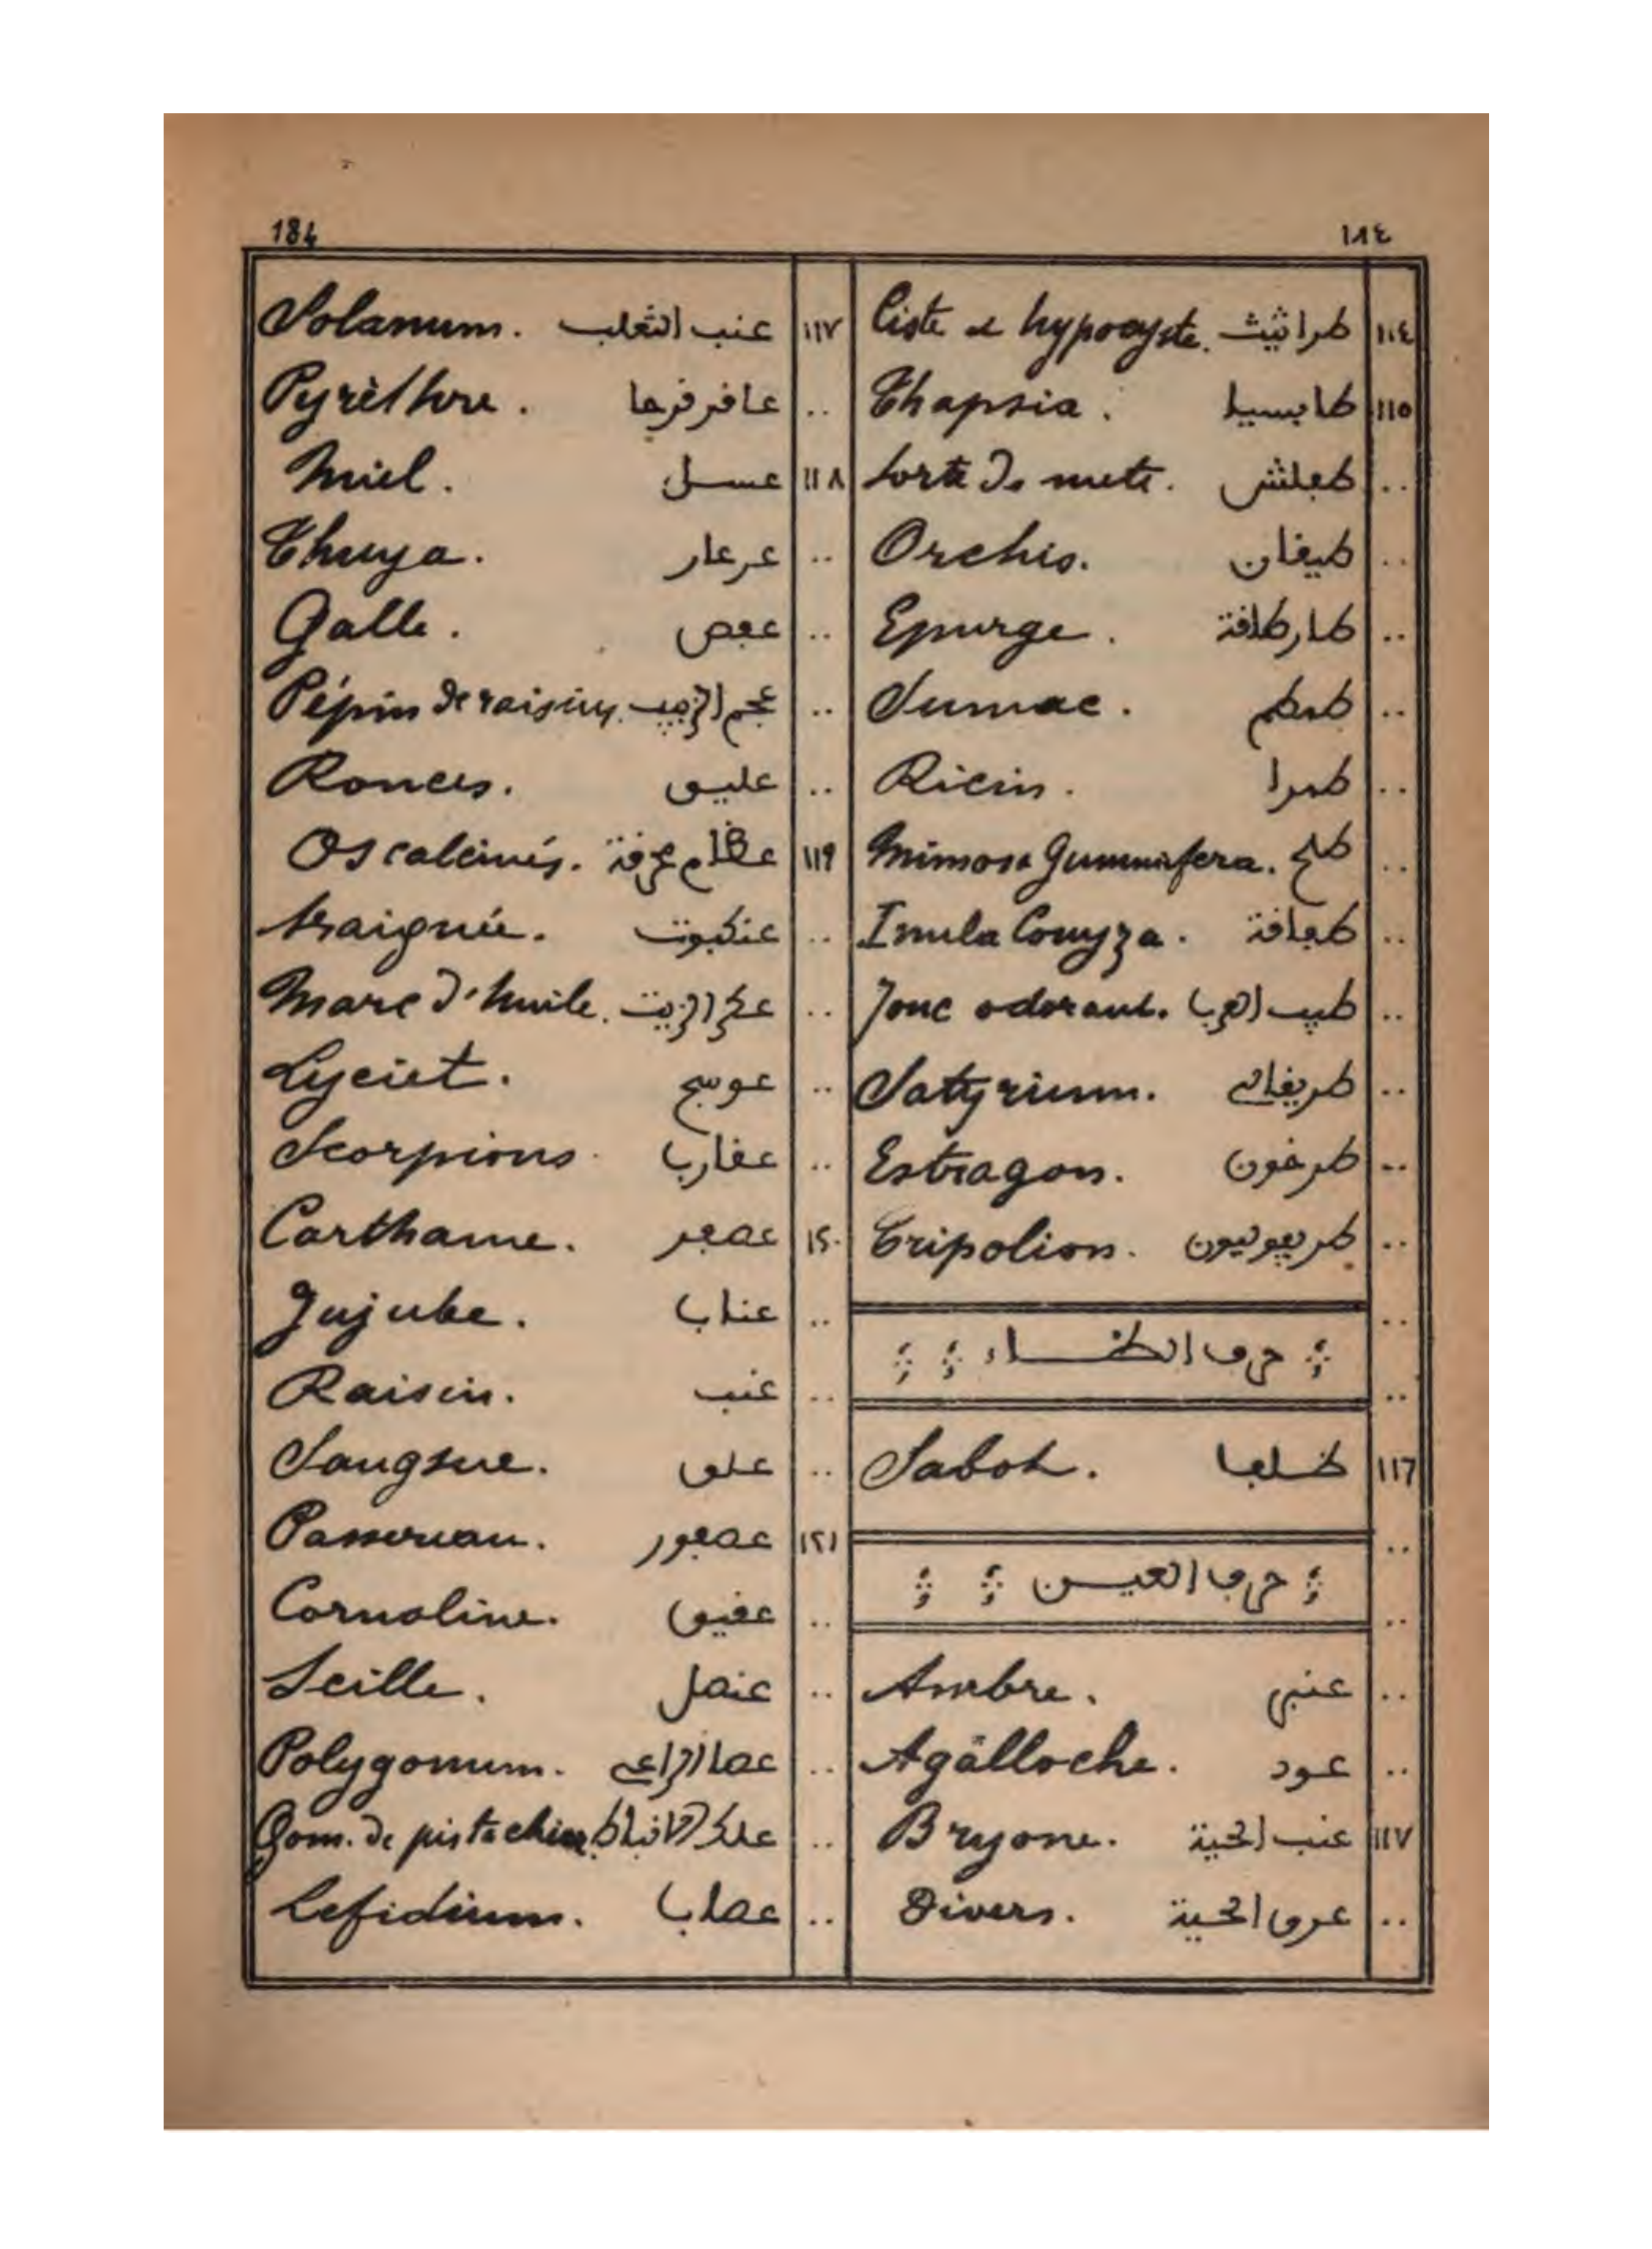 184
١٨٤
١١٤ طراثيث Ciste et hypocyste.
١١٥ طابسيا Thapsia.
.. Sorte de mets.
.. طيقان Orchis.
.. طارطقة Epurge.
.. طمطم Sumac.
.. طمرا Ricin.
.. طلح Mimosa Gummifera.
.. Inula Conyza.
.. طيب العرب Jonc odorant.
.. Satyrium.
.. طرخون Estragon.
.. طريفوليون Tripolion.
.. 
حرف الظاء
..
١١٦ ظلف Sabot.
..
حرف العين
..
.. عنبر Ambre.
.. عود Agalloche.
١١٧ عنب الحية Bryone.
.. عرق الحية Divers.
١١٧ عنب الثعلب Solanum.
.. عاقرقرحا Pyrèthre.
١١٨ عسل Miel.
.. عرعار Thuya.
.. عفص Galle.
.. عجم الزبيب Pépin de raisins.
.. عليق Ronces.
١١٩ عظام محرقة Os calcinés.
.. عنكبوت Araignée.
.. عكر الزيت Marc d'huile.
.. عوسج Lyciet.
.. عقارب Scorpions.
١٢٠ عصفر Carthame.
.. عناب Jujube.
.. عنب Raisin.
.. علق Sangsue.
١٢١ عصفور Passereau.
.. عقيق Cornaline.
.. عنصل Scille.
.. عصا الراعي Polygonum.
.. علك الانباط Gom. de pistachier.
.. عصاب Lefidium.